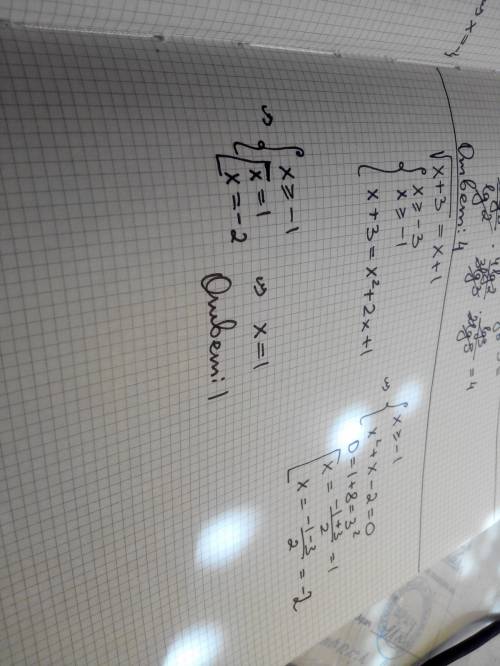 Ответ: 4
√x+3 = x+1
{ x ≥ -3
x ≥ -1
x+3 = x²+2x+1
⇔ { x ≥ -1
x²+x-2=0
D=1+8=3²
[ x = \frac{-1+3}{2} = 1
x = \frac{-1-3}{2} = -2
⇔ { x ≥ -1
[ x = 1
x = -2
⇔ x = 1
Ответ: 1